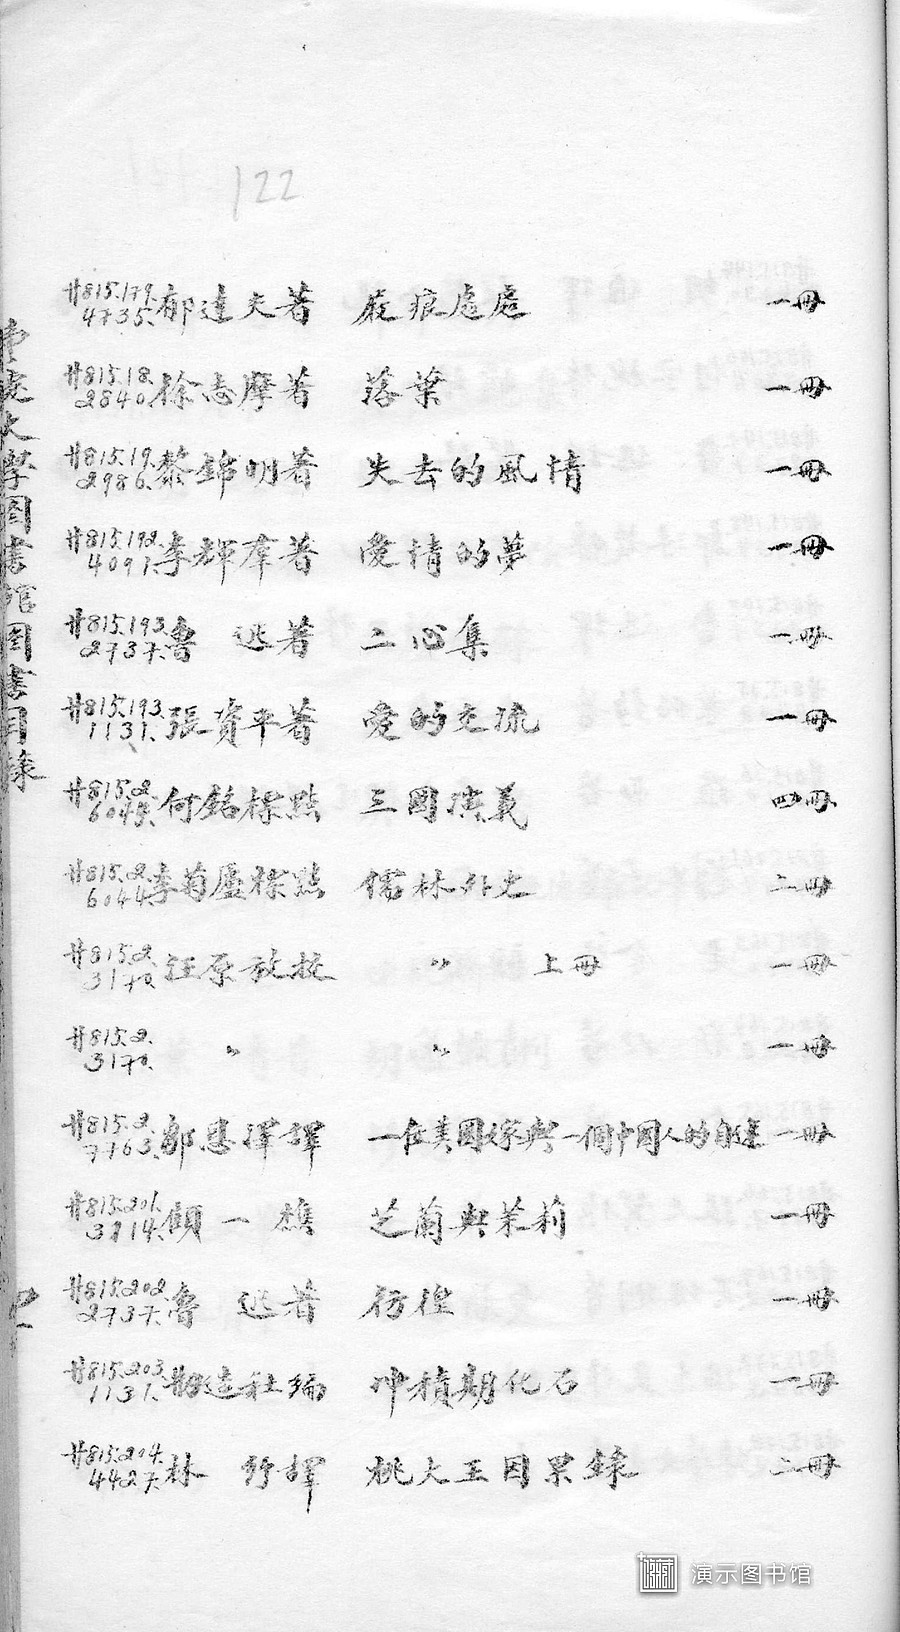 122
廿815.179. 4735. 郁達夫著 屐痕處處 一冊
廿815.18. 2840. 徐志摩著 落葉 一冊
廿815.19. 2986. 黎錦明著 失去的風情 一冊
廿815.192. 4091. 李輝羣著 愛情的夢 一冊
廿815.193. 2737. 魯迅著 二心集 一冊
廿815.193. 1131. 張資平著 愛的交流 一冊
廿815.2. 何銘標點 三國演義 四冊
廿815.2. 6044. 李菊廬標點 儒林外史 二冊
廿815.2. 3170. 汪原放校 〃 上冊 一冊
廿815.2. 3170. 〃 〃 一冊
廿815.2. 7763. 鄭恩澤譯 一位美國嫁與一個中國人的自述 一冊
廿815.201. 3114. 顧一樵 芝蘭與茉莉 一冊
廿815.202. 2737. 魯迅著 彷徨 一冊
廿815.203. 1131. 造社編 冲積期化石 一冊
廿815.204. 4427. 林紓譯 桃大王因果錄 二冊
大學圖書館圖書目錄
演示图书馆